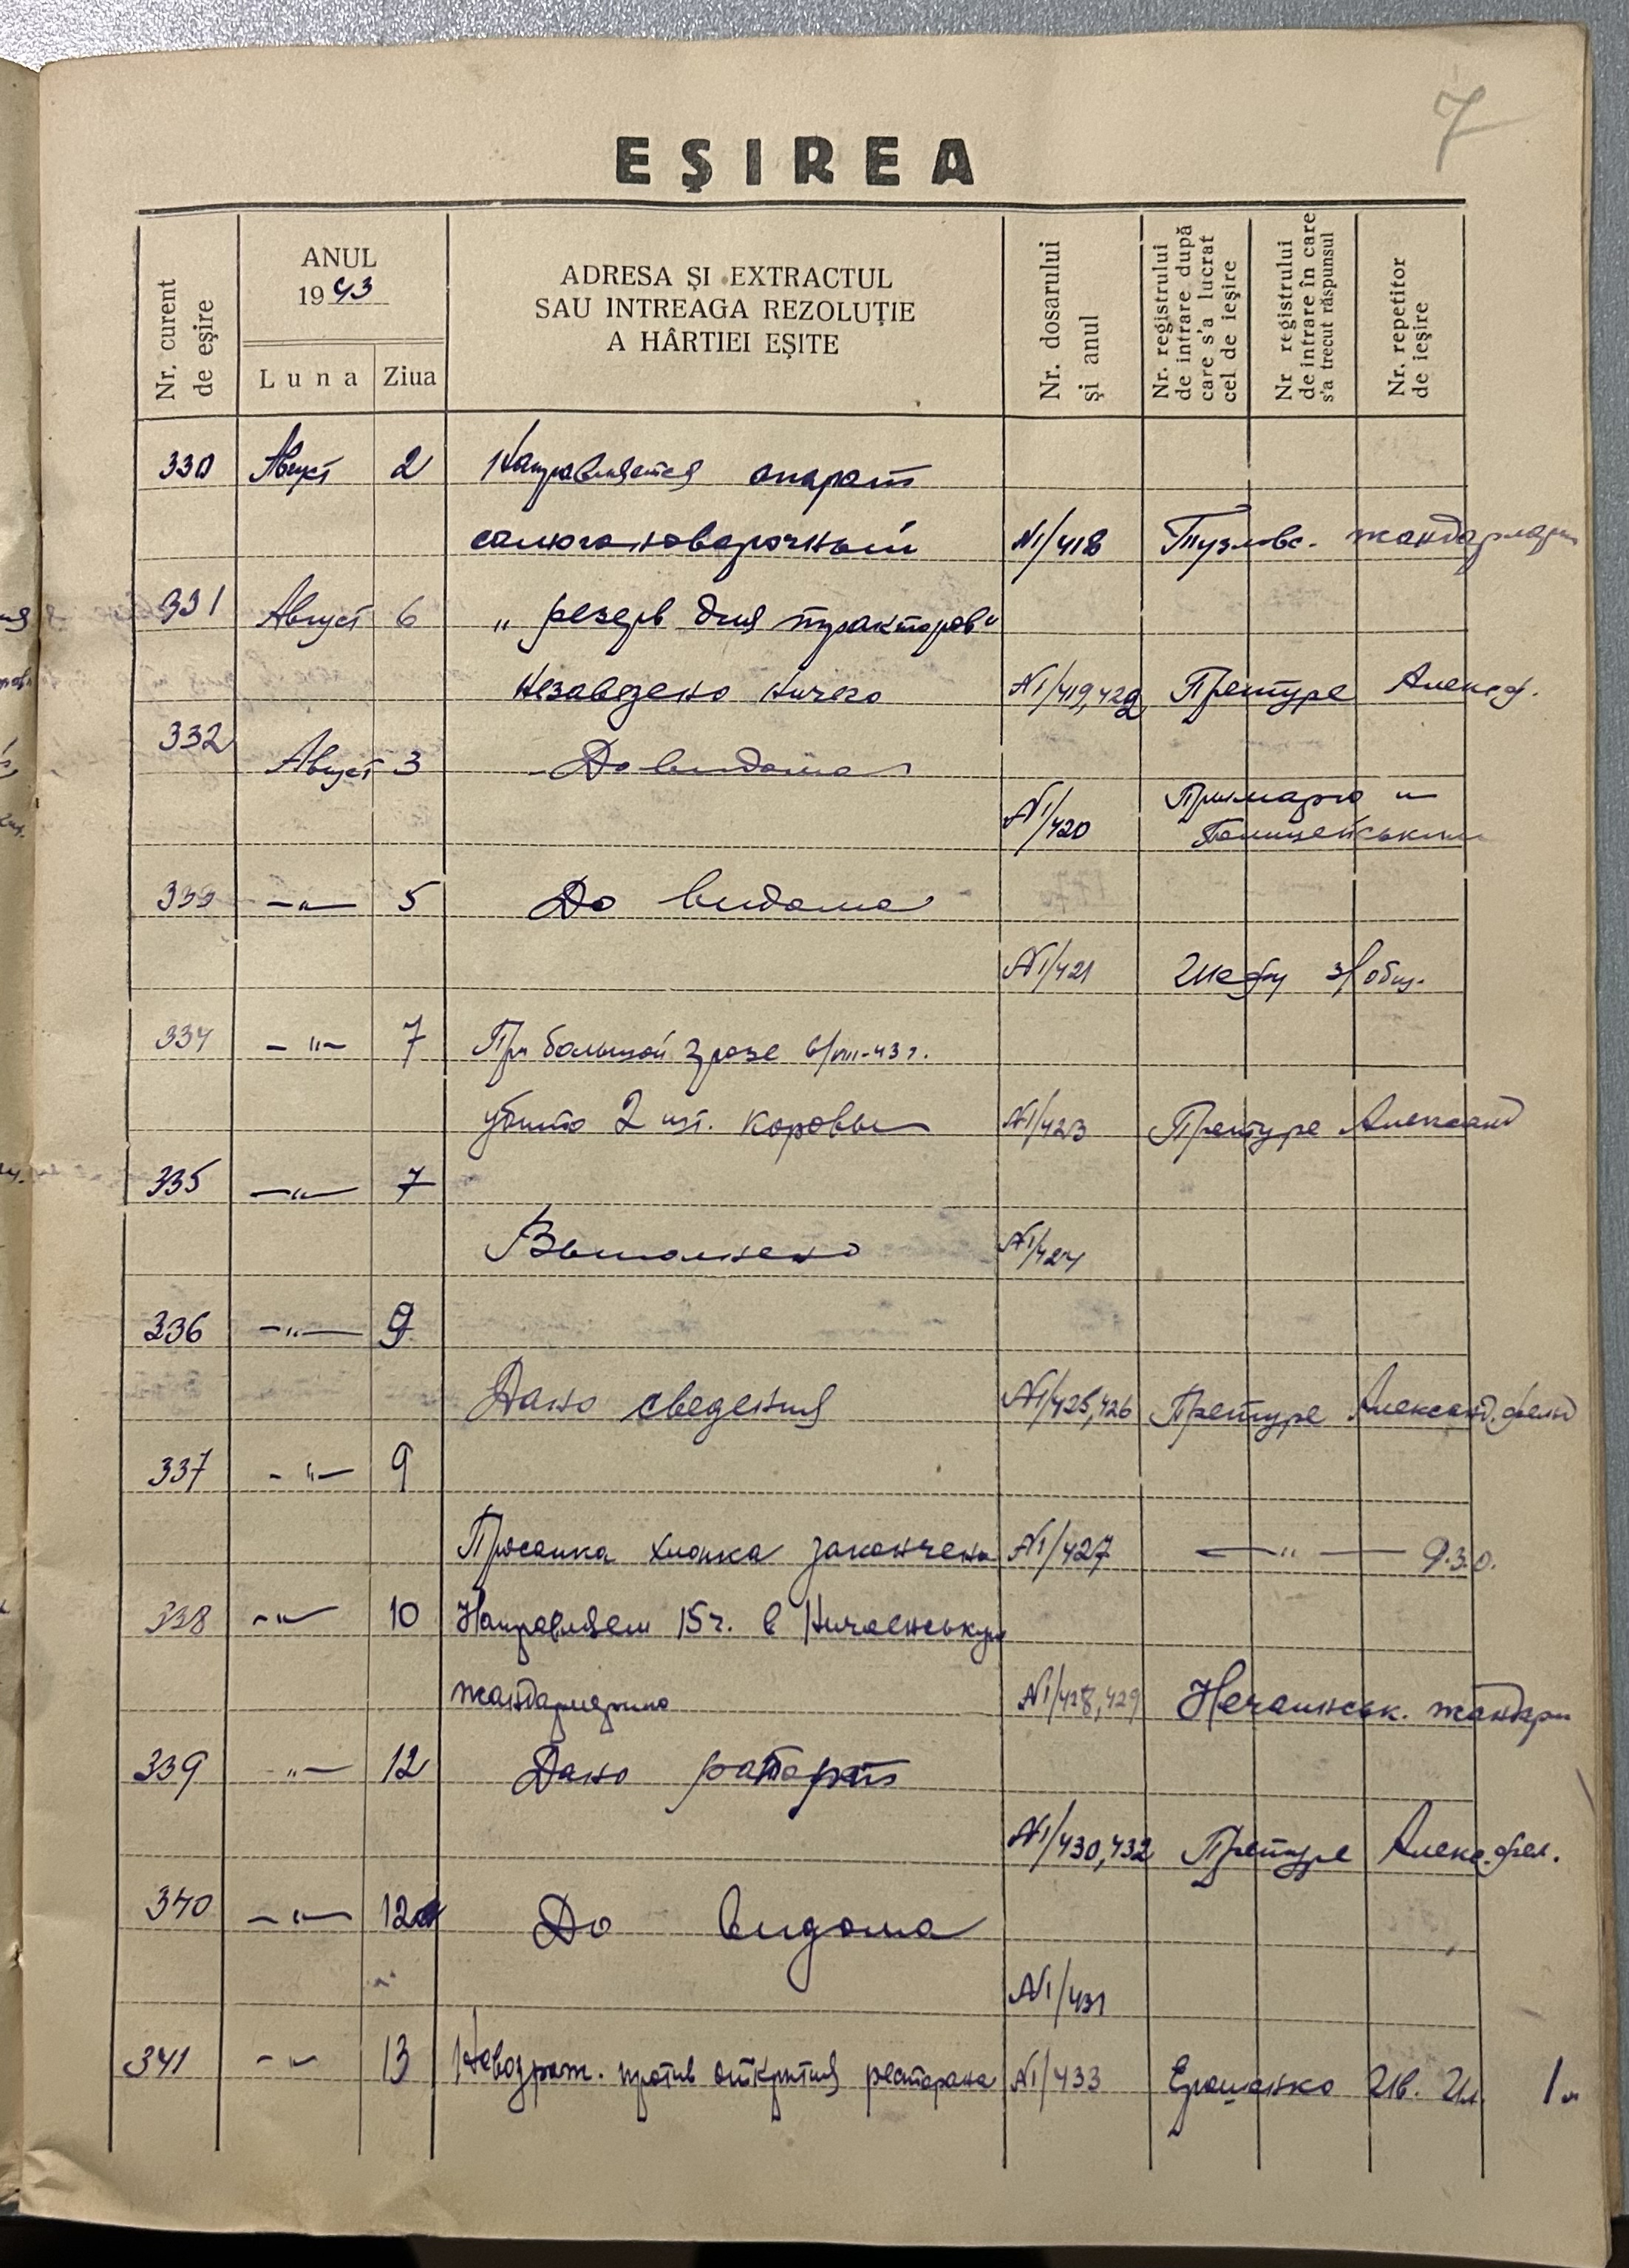 7
EȘIREA
Nr. curent de eșire
ANUL
1943
Luna
Ziua
ADRESA ȘI EXTRACTUL
SAU INTREAGA REZOLUȚIE
A HÂRTIEI EȘITE
Nr. dosarului
și anul
Nr. registrului
de intrare după
care s'a lucrat
cel de ieșire
Nr registrului
de intrare în care
s'a trecut răspunsul
Nr. repetitor
de ieșire
330 Август 2 Направляется апарат
самогоноварочный №1/418 Тузловс. жандармерии
331 Август 6 „ резерв для тракторов"
незавезено ничего №1/419,422 Претуре Алексф.
332 Август 3 До видома
№1/420 Примарю и
Полицейським
333 —"— 5 До видома
№1/421 Шефу
334 —"— 7 При большой грозе 6/VIII-43 г.
убито 2 шт. коровы №1/423 Претуре Александ
335 —"— 7
Выполнено №1/424
336 —"— 9
Дано сведения №1/425,426 Претуре Александ.фельд
337 —"— 9
Просапка хлопка закончена №1/427 —"—
338 —"— 10 Направляем 15 ч. в Ничаенську
жандармерию №1/428,429 Нечаинськ.
339 —"— 12 Дано рапорт
№1/430,432 Претуре Алекс.фел.
340 —"— 12 До видома
№1/431
341 —"— 13 Невозраж. против открытия ресторана №1/433 Ерошенко Ив. Ил.